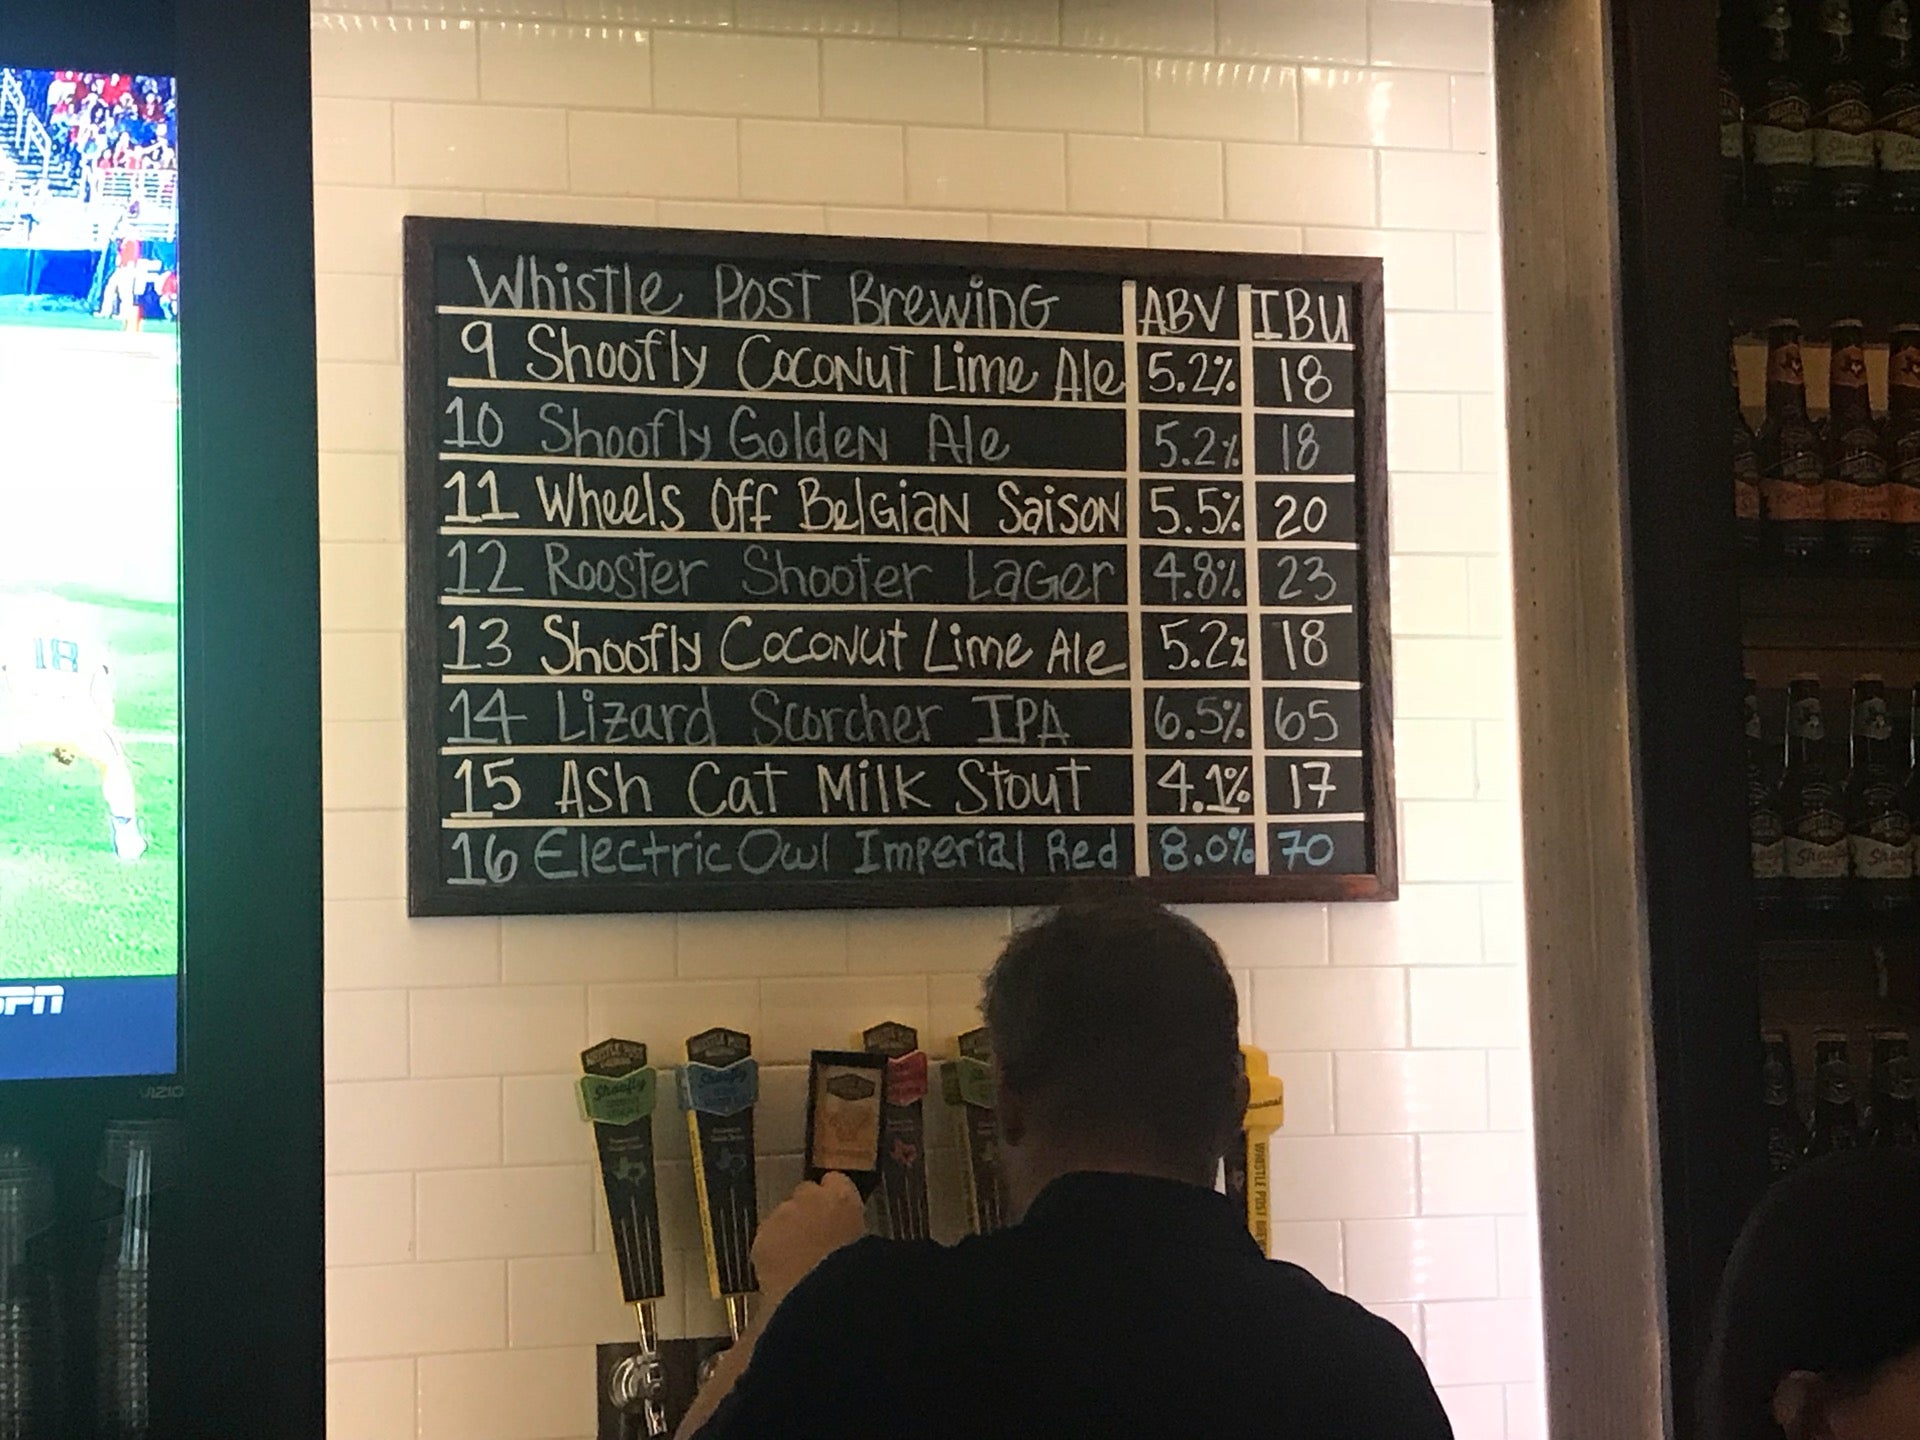 Whistle Post Brewing ABV IBU
9 Shoofly Coconut Lime Ale 5.2% 18
10 Shoofly Golden Ale 5.2% 18
11 Wheels Off Belgian Saison 5.5% 20
12 Rooster Shooter Lager 4.8% 23
13 Shoofly Coconut Lime Ale 5.2% 18
14 Lizard Scorcher IPA 6.5% 65
15 Ash Cat Milk Stout 4.1% 17
16 Electric Owl Imperial Red 8.0% 70
18
VIZIO
Shoofly
Shoofly
WHISTLE POST